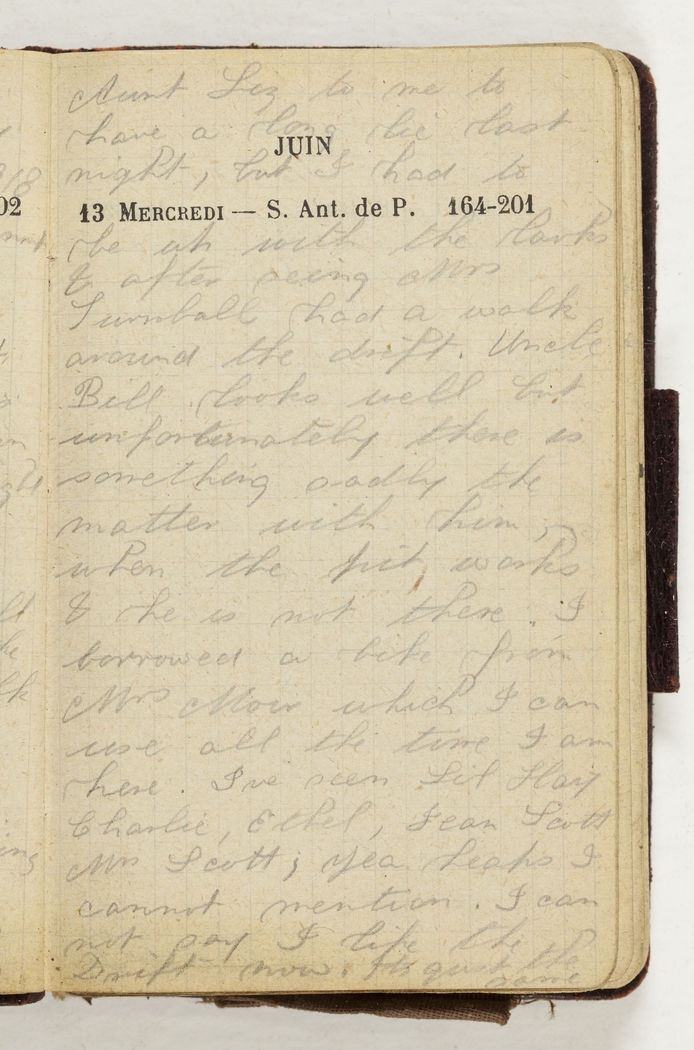 Aunt Liz to me to
have a long lie last
JUIN
night, but I had to
13 MERCREDI — S. Ant. de P. 164-201
be up with the larks
& after seeing Mrs
Turnball had a walk
around the drift. Uncle
Bill looks well but
unfortunately there is
something sadly the
matter with him,
when the pit works
& he is not there. I
borrowed a bike from
Mrs Moir which I can
use all the time I am
here. I've seen Lil Hay
Charlie, Ethel, Jean Scott
Mrs Scott; yea heaps I
cannot mention. I can
not say I like the
Drift now. Its just the
same
02
918